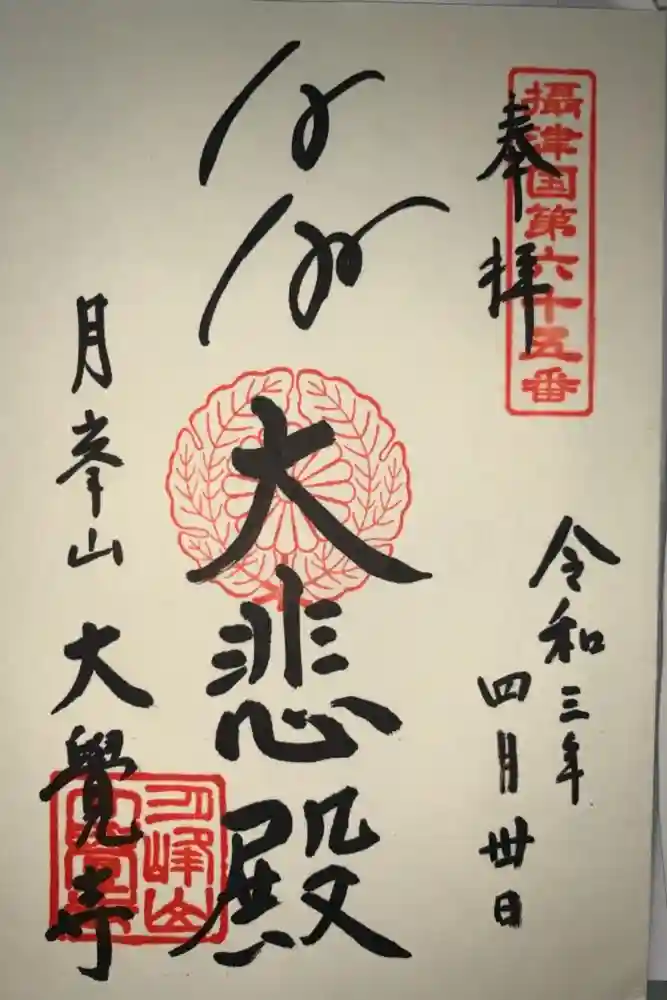 攝津国第六十五番
奉拝
令和三年
四月卅日
大悲殿
月峯山 大覺寺
月峰山
大覺寺